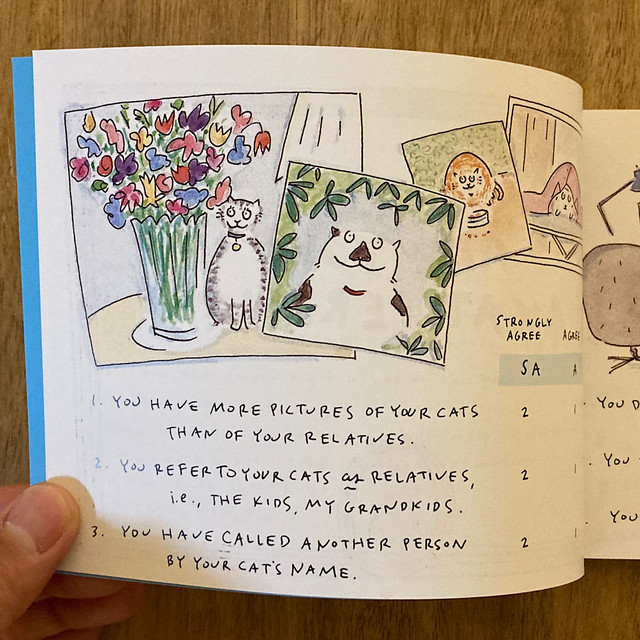 STRONGLY
AGREE
AGREE
SA
A
1. YOU HAVE MORE PICTURES OF YOUR CATS
THAN OF YOUR RELATIVES.
2
1
2. YOU REFER TO YOUR CATS as RELATIVES,
i.e., THE KIDS, MY GRANDKIDS.
2
1
3. YOU HAVE CALLED ANOTHER PERSON
BY YOUR CAT'S NAME.
2
1
. YOU D
. YOU
. YOU